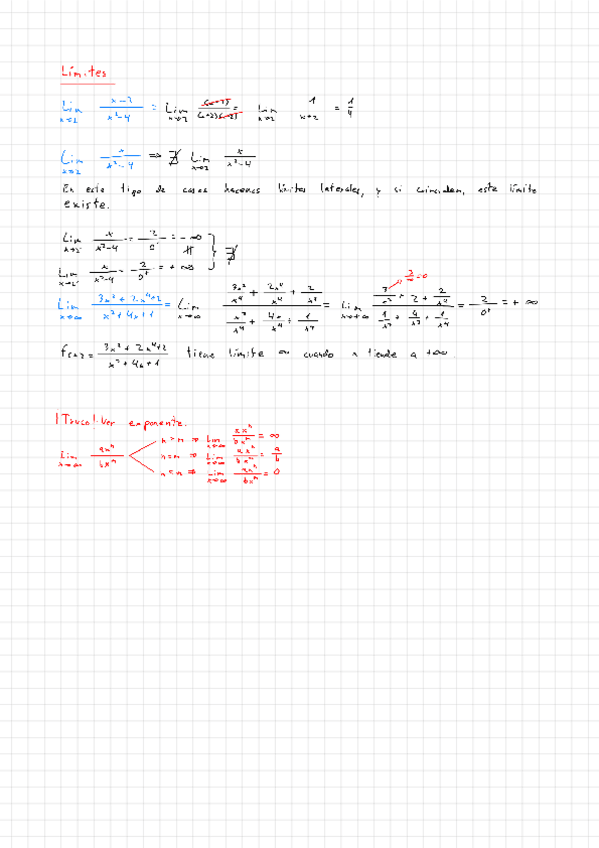 Límites
Lim x→2 (x-2)/(x²-4) = Lim x→2 (x-2)/((x+2)(x-2)) = Lim x→2 1/(x+2) = 1/4
Lim x→2 x/(x²-4) ⇒ ∄ Lim x→2 x/(x²-4)
En este tipo de casos hacemos límites laterales, y si coinciden, este límite
existe.
Lim x→2⁻ x/(x²-4) = 2/0⁻ = -∞
Lim x→2⁺ x/(x²-4) = 2/0⁺ = +∞ } ∄
Lim x→∞ (3x²+2x⁴+2)/(x³+4x+1) = Lim x→∞ (3x²/x⁴ + 2x⁴/x⁴ + 2/x⁴)/(x³/x⁴ + 4x/x⁴ + 1/x⁴) = Lim x→+∞ (3/x² + 2 + 2/x⁴)/(1/x + 4/x³ + 1/x⁴) = 2/0⁺ = +∞
f(x) = (3x²+2x⁴+2)/(x³+4x+1) tiene límite ∞ cuando x tiende a +∞
¡Truco! Ver exponente.
Lim x→∞ axⁿ/bxᵐ
⇒ Lim x→∞ axⁿ/bxᵐ = ∞
n=m ⇒ Lim x→∞ axⁿ/bxᵐ = a/b
⇒ Lim x→∞ axⁿ/bxᵐ = 0